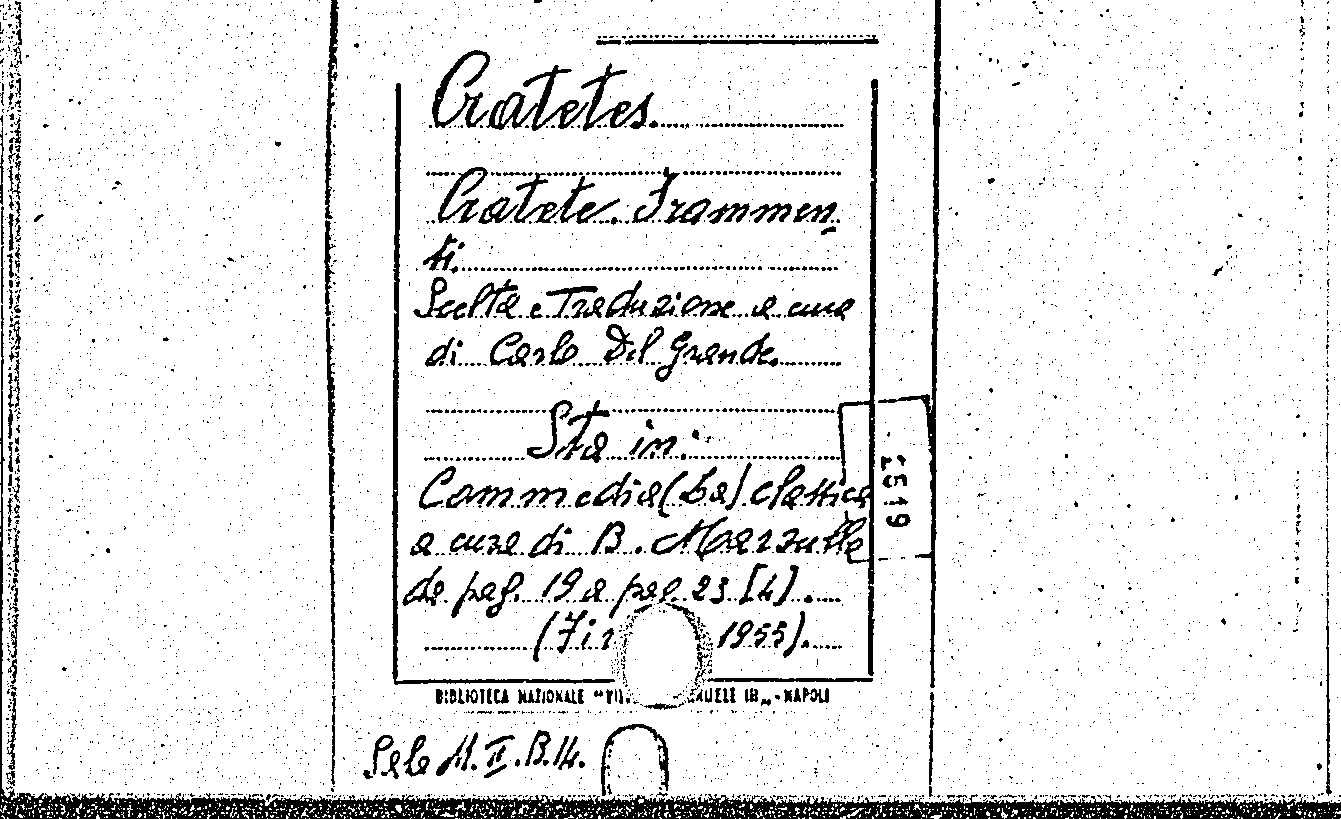 Cratetes.
Cratete. Frammen
ti.
Scelta e Traduzione a cura
di Carlo Del Grande.
Sta in:
Commedia (La) classica
a cura di B. Marzullo
da pag. 19 a pag. 23 [4].
(Fir 1955).
BIBLIOTECA NAZIONALE "VIT NUELE III„ - NAPOLI
Sala M. II. B. 14.
2519